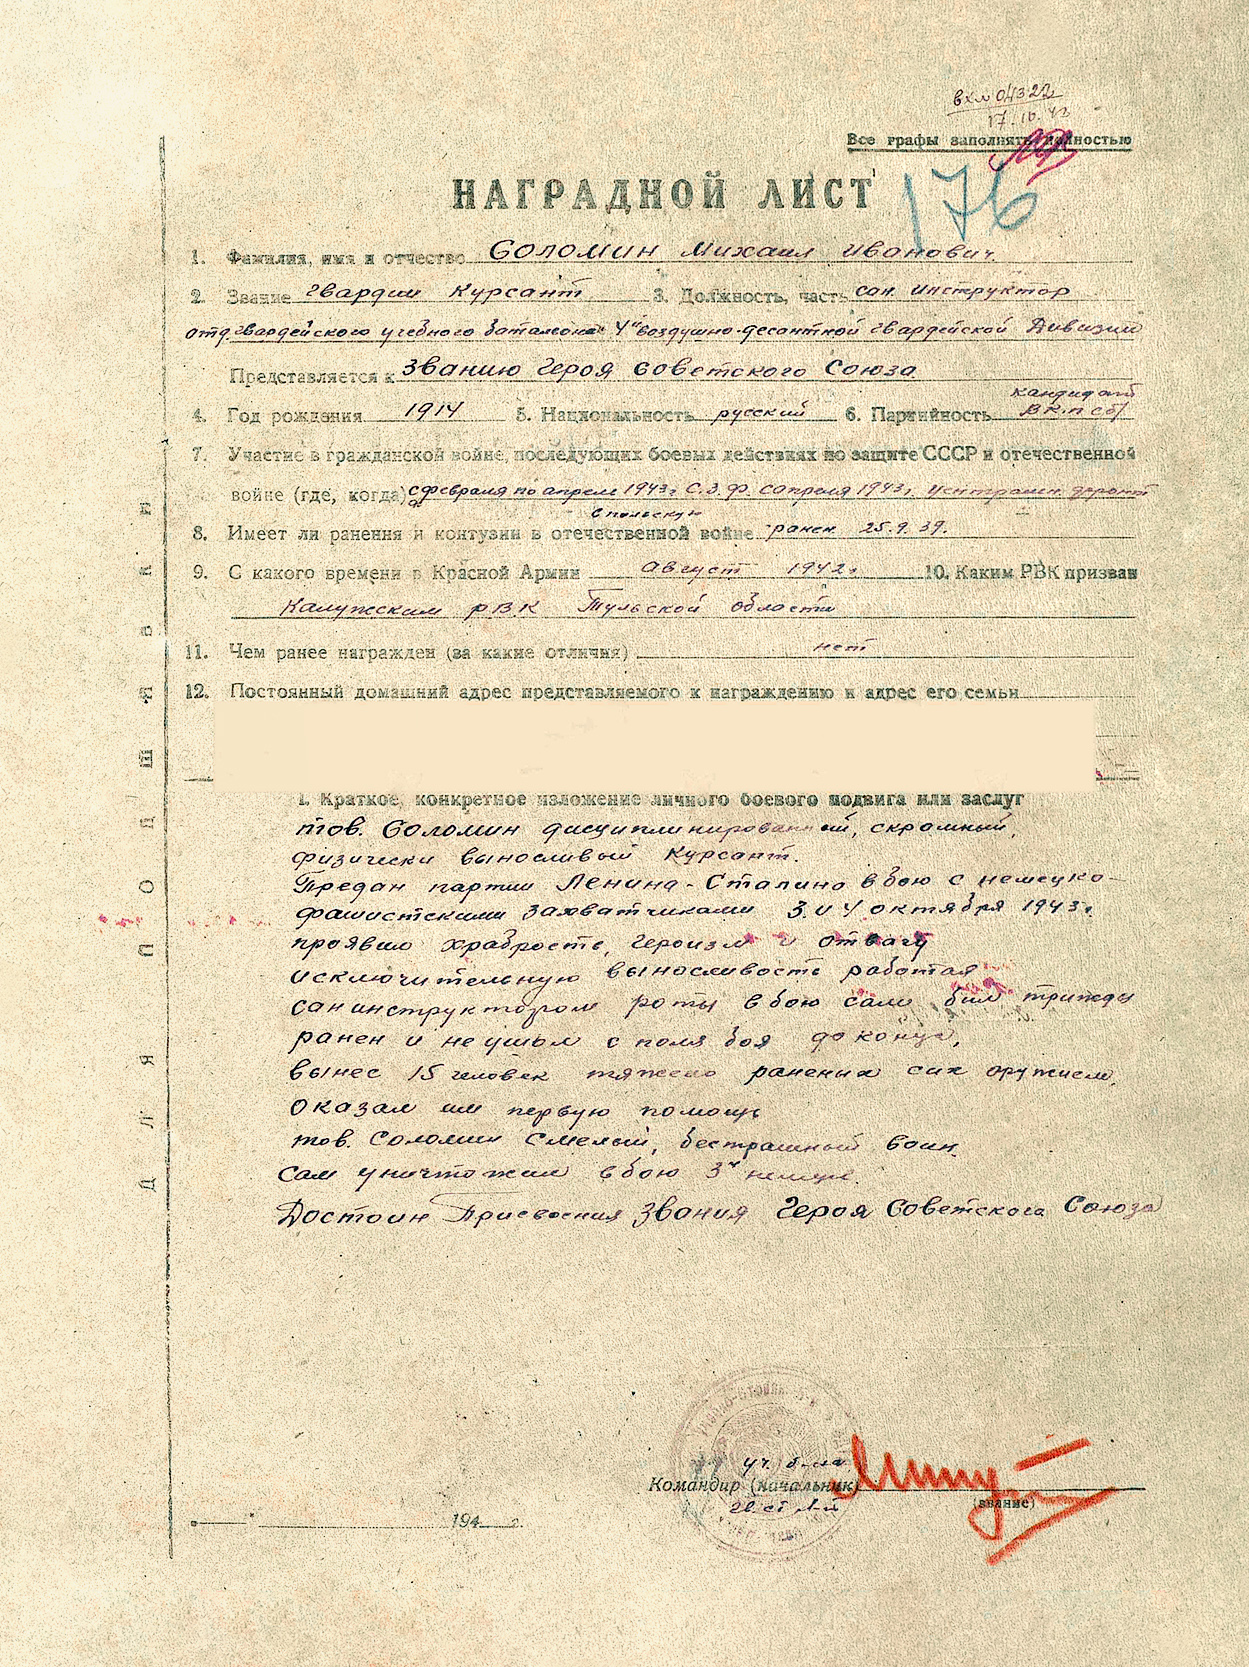 вх№ 04322
17.10.43
Все графы заполнять полностью
НАГРАДНОЙ ЛИСТ
176
1. Фамилия, имя и отчество Соломин Михаил Иванович.
2. Звание Гвардии Курсант 3. Должность, часть сан. инструктор
отд. гвардейского учебного баталиона 4й воздушно-десантной гвардейской Дивизии
Представляется к Званию Героя Советского Союза
кандидат
4. Год рождения 1914 5. Национальность русский 6. Партийность ВКП(б)
7. Участие в гражданской войне, последующих боевых действиях по защите СССР и отечественной
войне (где, когда) с февраля по апрель 1943г С.З.Ф. с апреля 1943г. Централн. фронт
с польскую
8. Имеет ли ранения и контузии в отечественной войне ранен 25.9.39.
9. С какого времени в Красной Армии Август 1942г 10. Каким РВК призван
Калужским РВК Тульской области
11. Чем ранее награжден (за какие отличия) нет
12. Постоянный домашний адрес представляемого к награждению и адрес его семьи
1. Краткое, конкретное изложение личного боевого подвига или заслуг
тов. Соломин дисциплинированный, скромный,
физически выносливый Курсант.
Предан партии Ленина-Сталина в бою с немецко-
фашистскими захватчиками 3 и 4 октября 1943г.
проявил храбрость, героизм и отвагу
исключительную выносливость работая
санинструктором роты в бою сам был трижды
ранен и не ушол с поля боя до конца,
вынес 15 человек тяжело раненых с их оружием,
оказал им первую помощь
тов. Соломин Смелый, бесстрашный воин.
Сам уничтожил в бою 3х немцев.
Достоин Присвоения Звания Героя Советского Союза
уч. б-на
Командир (начальник)
гв. ст. л-т
(звание)
194 г.
ДЛЯ ПОДШИВКИ